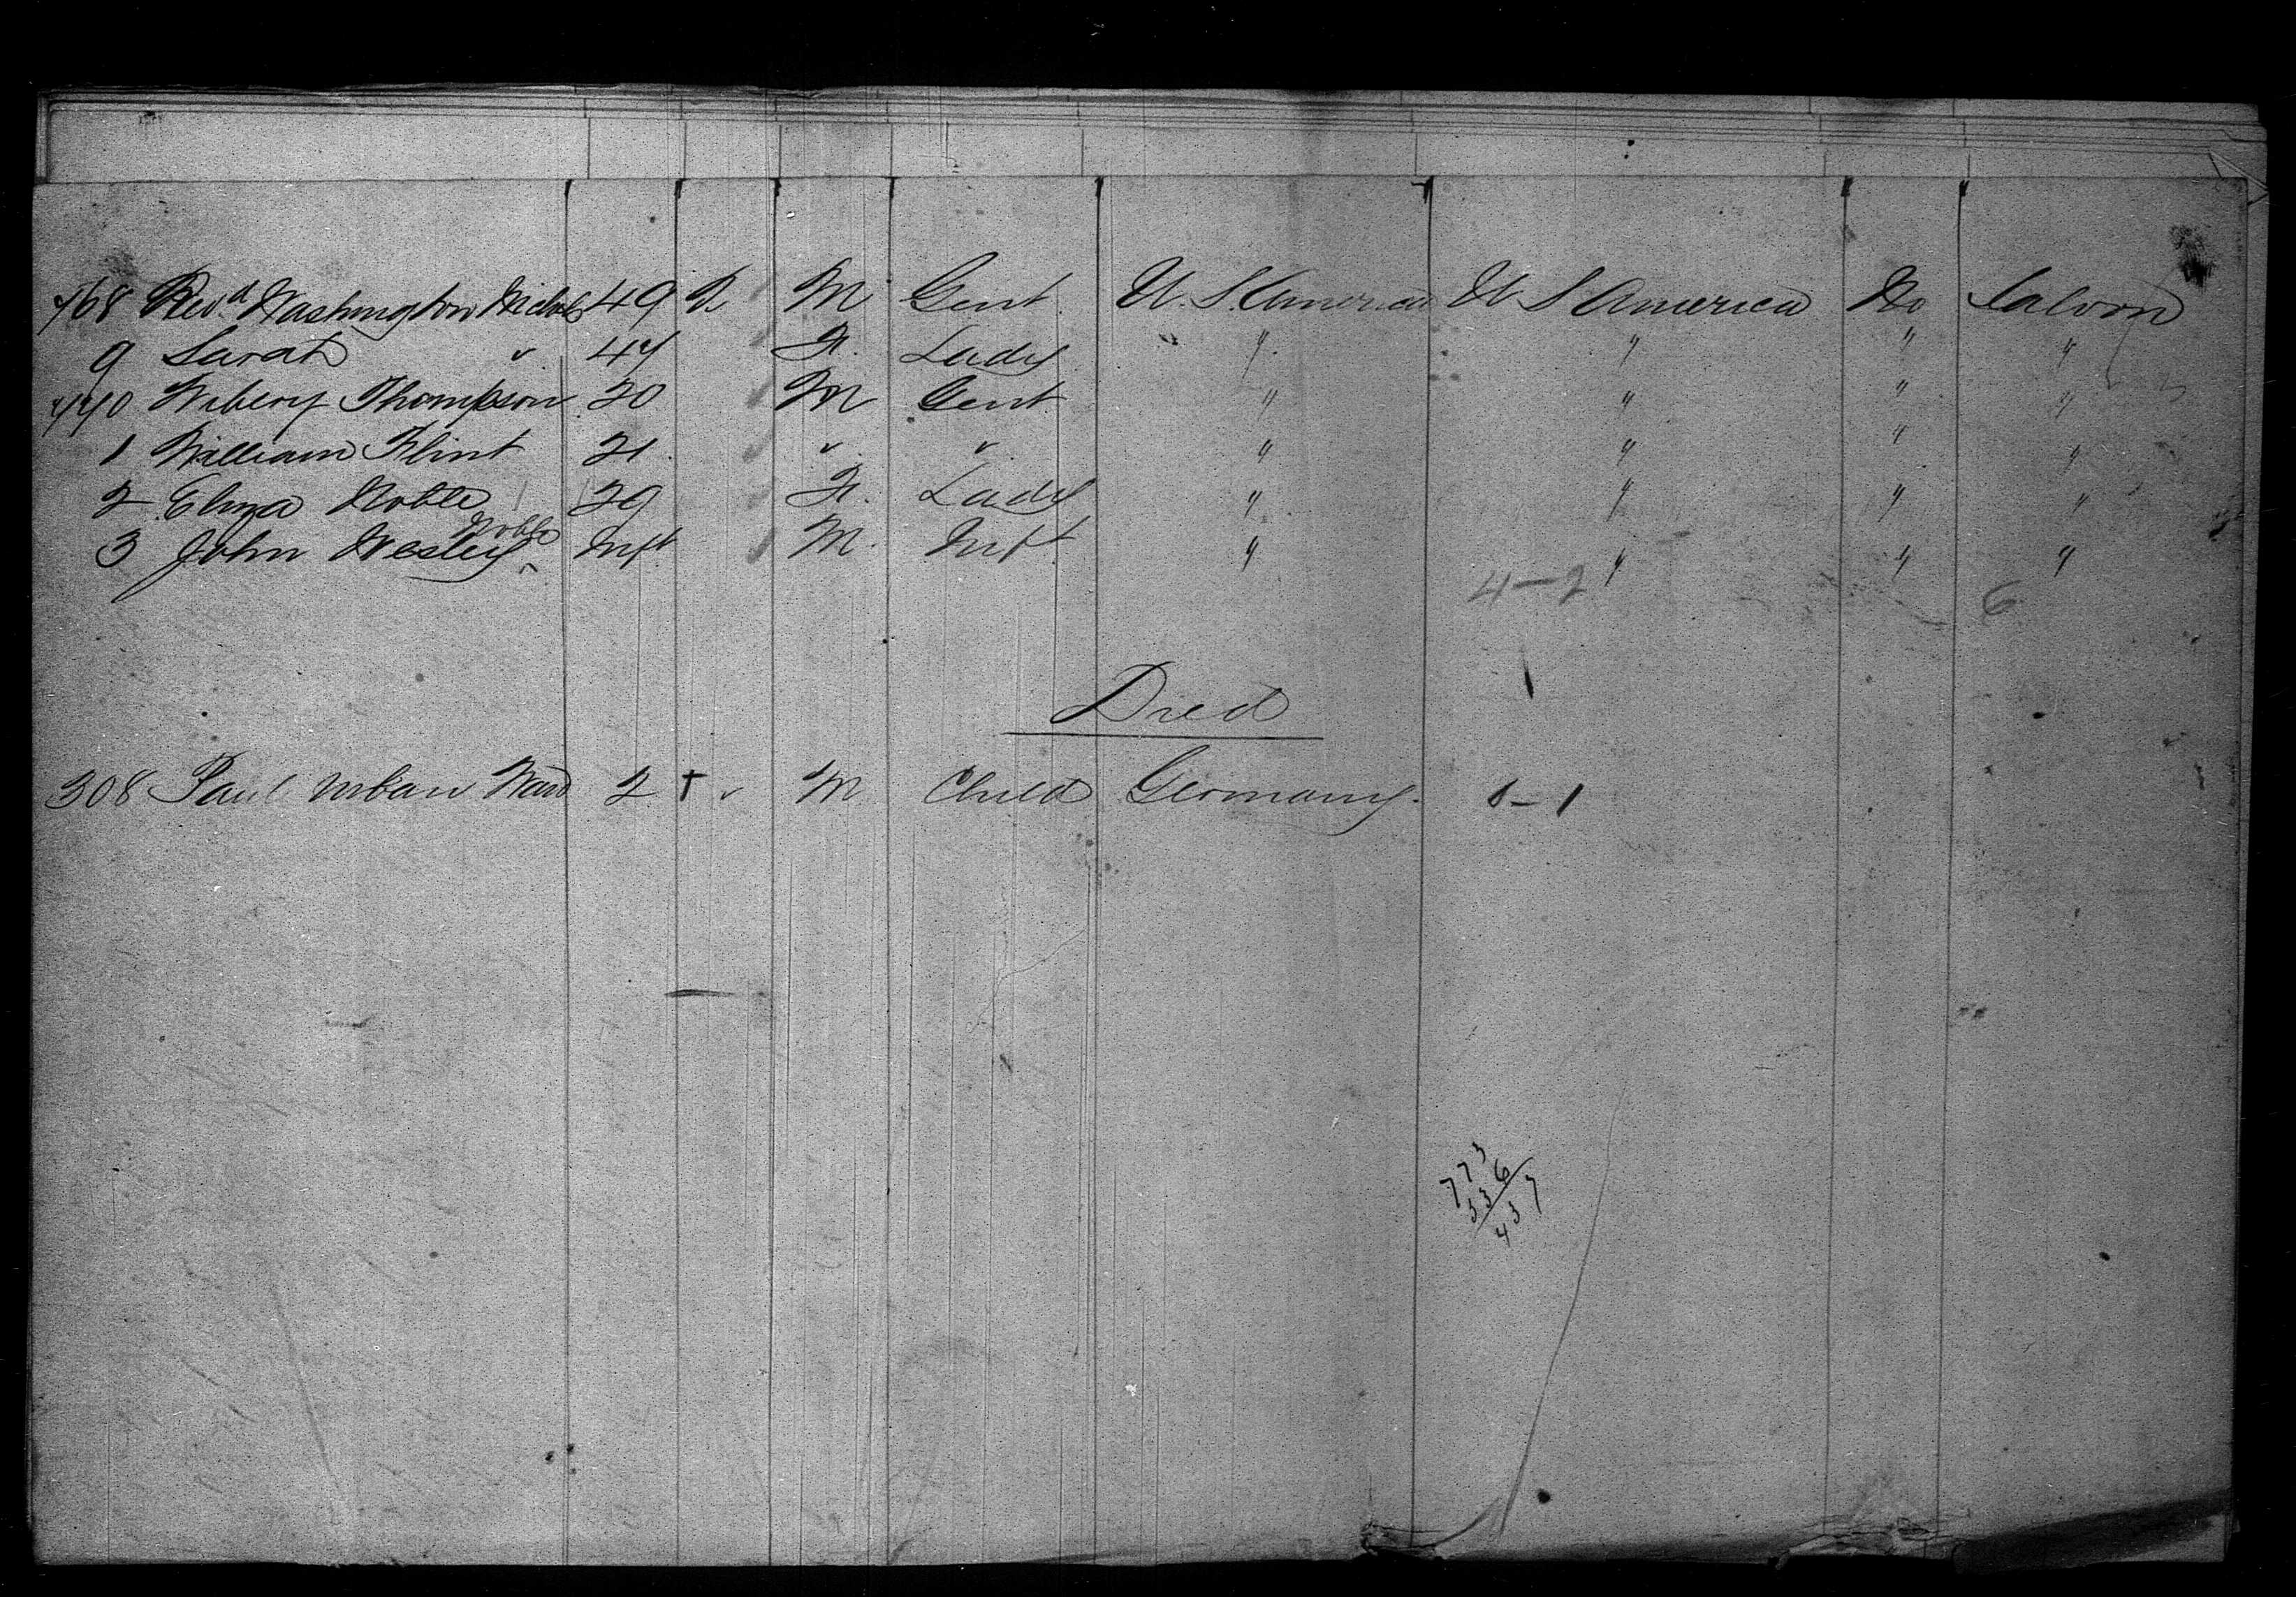 468 Revd. Washington Nichols 49 M Gent U. S. America U S America No Saloon
9 Sarah " 47 F. Lady " " " "
470 Thompson 20 M Gent " " " "
1 William Flint 21 " " " " " "
2 Eliza Noble 29 F. Lady " " " "
3 John Wesley Noble Inft M. Inft " " " "
4-2 6
Died
308 Paul Urban Ward 2 M Child Germany. 0-1
773
336
437